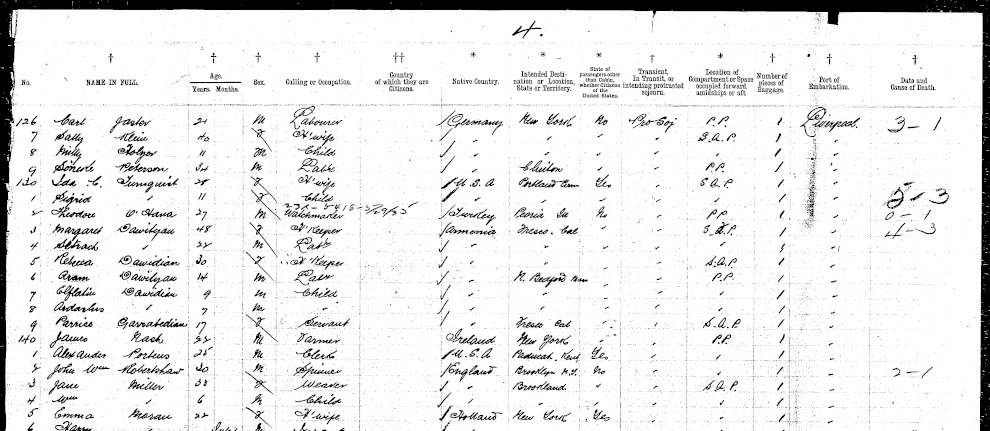 4.
No. NAME IN FULL. Age. Years. Months. Sex. Calling or Occupation. Country of which they are Citizens. Native Country. Intended Destination or Location, State or Territory. State of passengers other than Cabin, whether Citizens of the United States. Transient, In Transit, or intending protracted sojourn. Location of Compartment or Space occupied forward, amidships or aft. Number of pieces of Baggage. Port of Embarkation. Date and Cause of Death.
126 Carl Jaster 21 M Labourer Germany New York No Pro Soj P.P. 1 Liverpool 3-1
7 Sally Klein 40 F H'wife " " " " S.A.P. 1 "
8 Milly 11 M Child " " " " " 1 "
9 Peterson 34 M Labr " Clinton " " P.P. 1 "
130 Ida C. Turnquist 28 F H'wife U.S.A Portland Yes " S.A.P. 1 "
1 Sigrid " 11 F Child " " " " " 1 " 5-3
2 Theodore O'Hana 27 M Watchmaker Turkey Peoria Ill No " P.P. 1 " 0-1
3 Margaret Dawityan 48 F H'Keeper Armenia Fresco. Cal " " S.A.P. 1 " 4-3
4 " 22 M Labr " " " " " 1 "
5 Rebecca Dawidian 30 F H'Keeper " " " " S.A.P. 1 "
6 Aram Dawityan 14 M Labr " N. Bedford " " P.P. 1 "
7 Dawidian 9 M Child " " " " " 1 "
8 " 7 M " " " " " " 1 "
9 Garrabedian 17 F Servant " Fresco Cal " " S.A.P. 1 "
140 James Nash 22 M Farmer Ireland New York " " P.P. 1 "
1 Alexander Porteus 25 M Clerk U.S.A Paducah. Kent Yes " " 1 "
2 John Wm Robertshaw 30 M Spinner England Brooklyn N.Y. No " " 1 " 2-1
3 Jane Miller 38 F Weaver " Brookland " " S.A.P. 1 "
4 Wm " 6 M Child " " " " " 1 "
5 Emma Moran 22 F H'wife Holland New York Yes " " 1 "
6 Harry